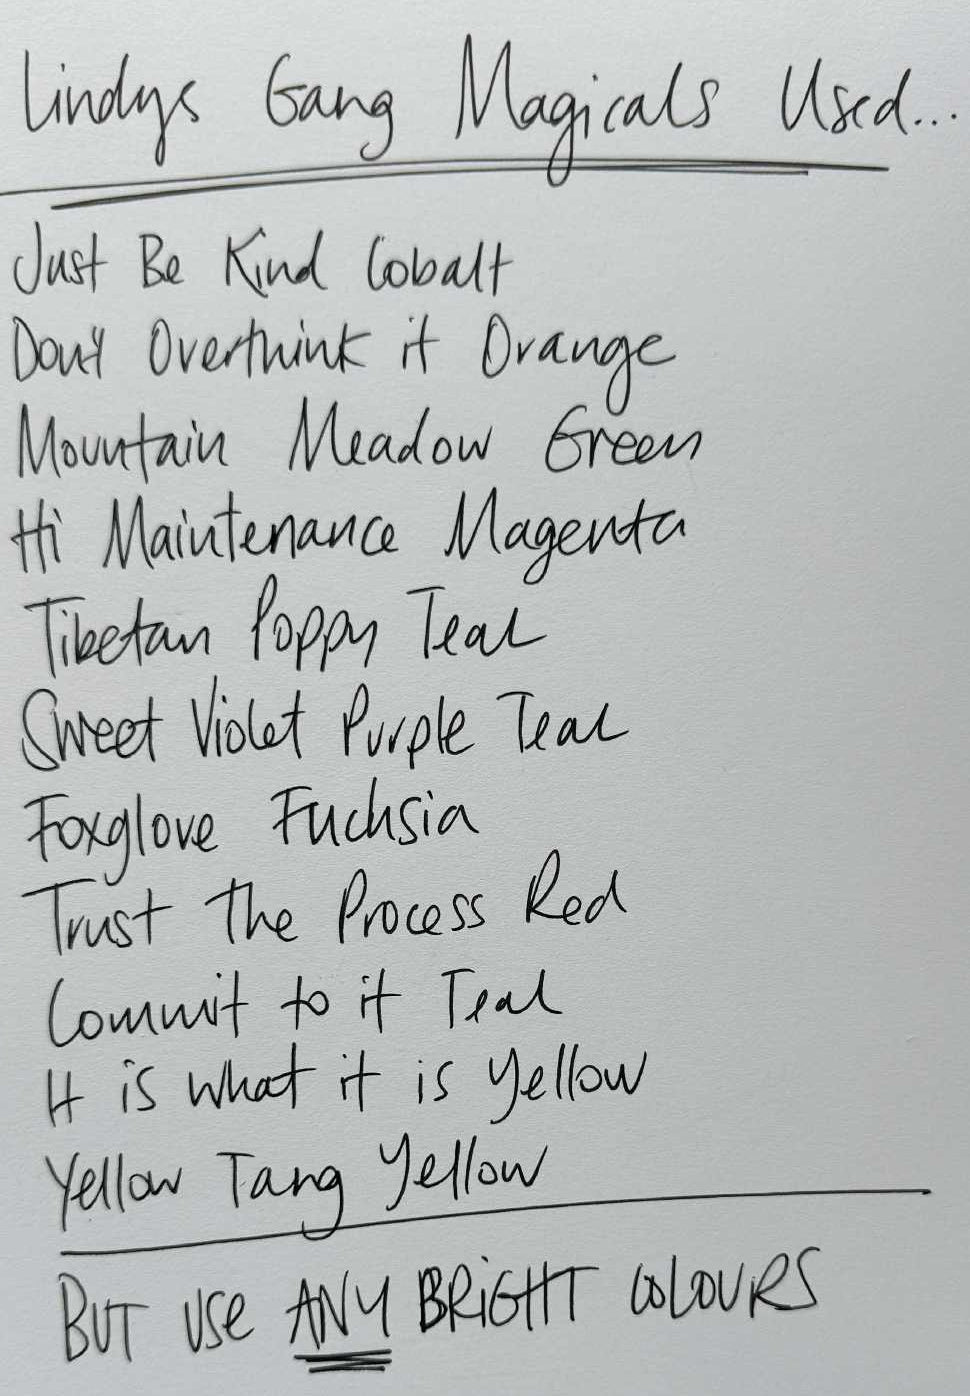 Lindys Gang Magicals Used...
Just Be Kind Cobalt
Don't Overthink it Orange
Mountain Meadow Green
Hi Maintenance Magenta
Tibetan Poppy Teal
Sweet Violet Purple Teal
Foxglove Fuchsia
Trust the Process Red
Commit to it Teal
It is what it is Yellow
Yellow Tang Yellow
BUT USE ANY BRIGHT COLOURS